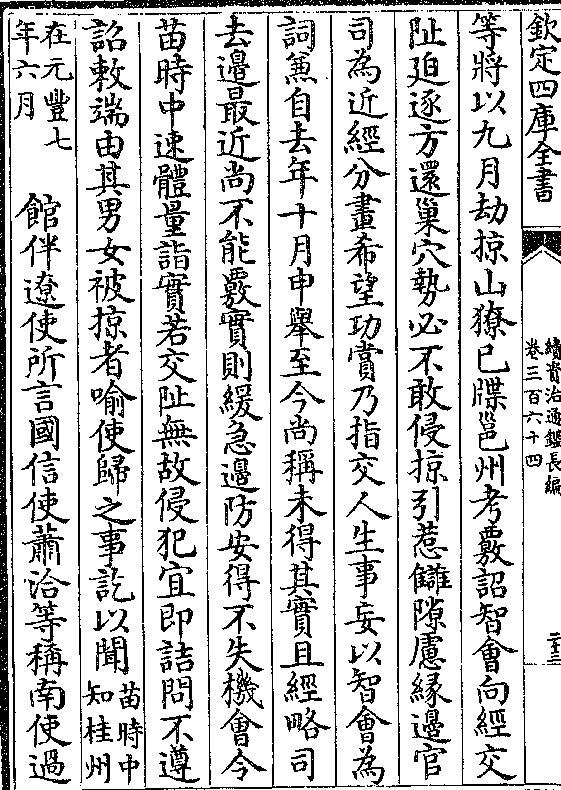 欽定四庫全書
續資治通鑑長編
卷三百六十四
二十三
等將以九月劫掠山獠已牒邕州考覈詔智會向經交
阯廹逐方還巢穴勢必不敢侵掠引惹讎隙慮緣邊官
司為近經分畫希望功賞乃指交人生事妄以智會為
詞兼自去年十月申舉至今尚稱未得其實且經略司
去邊最近尚不能覈實則緩急邊防安得不失機會今
苗時中速體量詣實若交阯無故侵犯宜即詰問不遵
詔敕端由其男女被掠者喻使歸之事訖以聞
苗時中
知桂州
在元豐七
年六月
館伴遼使所言國信使蕭洽等稱南使過